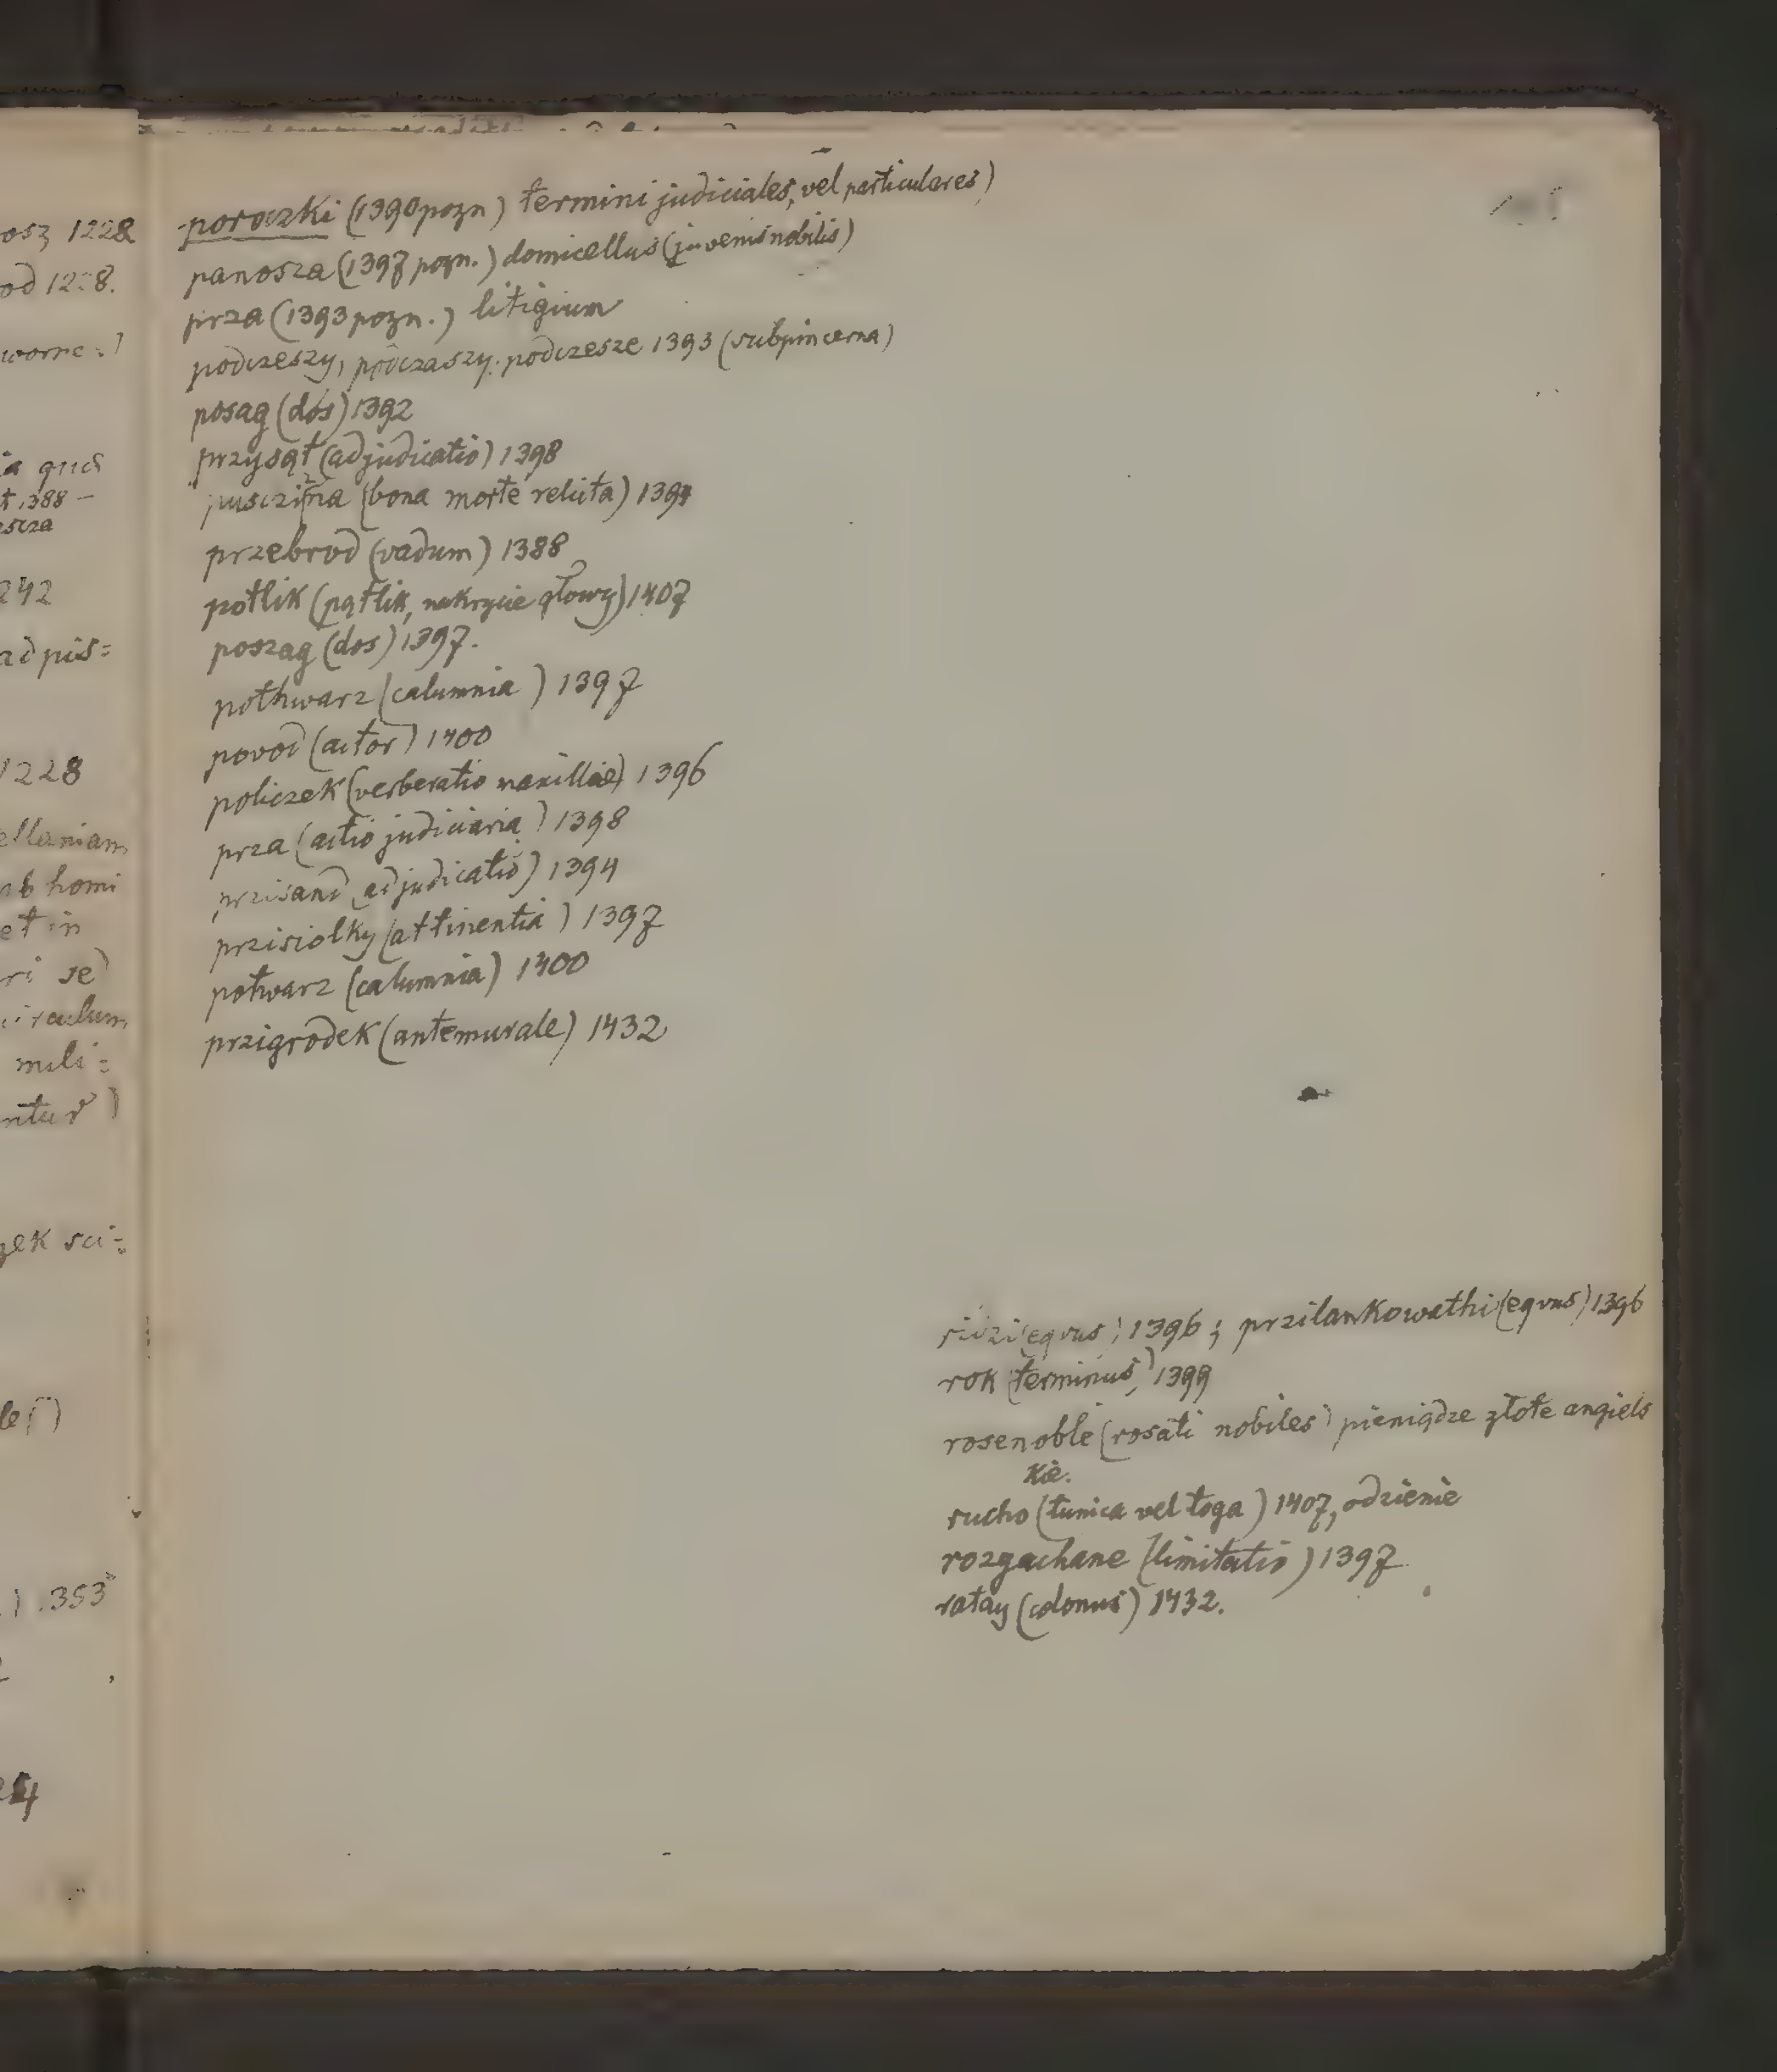 osz 1228
od 1228.
worne:)
ia quod
t 1388 —
szcza
242
ad pis=
1228
ellaniam
ab homi
et in
ri se
iraculum
mili=
ntur)
zek sci=
353
24
poroczki (1390 pozn) termini judiciales, vel particulares)
panosza (1397 pozn.) domicellus (juvenis nobilis)
prza (1393 pozn.) litigium
podczeszy, podczaszy. podczesze 1393 (subpincerna)
posag (dos) 1392
przysąt (adjudicatio) 1398
pusczina (bona morte relicta) 1394
przebrod (vadum) 1388
potlik (pątlik, nakrycie głowy) 1407
poszag (dos) 1397.
pothwarz (calumnia) 1397
povod (actor) 1400
policzek (verberatio maxillae) 1396
prza (actio judiciaria) 1398
przisand adjudicatio) 1394
przisiolky (attinentia) 1397
potwarz (calumnia) 1400
przigrodek (antemurale) 1432
(equus) 1396; przilankowathi (equus) 1396
rok (terminus) 1399
rosenoble (rosati nobiles) pieniądze złote angiels
kie.
rucho (tunica vel toga) 1407, odzienie
rozgachane (limitatio) 1397
ratay (colonus) 1432.